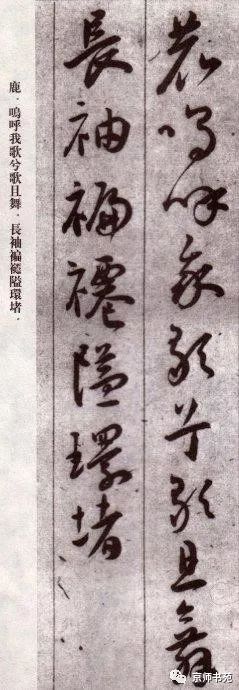 鹿嗚呼我歌兮歌且舞
長袖褊褼隘環堵
鹿．嗚呼我歌兮歌且舞．長袖褊褼隘環堵．
京师书苑